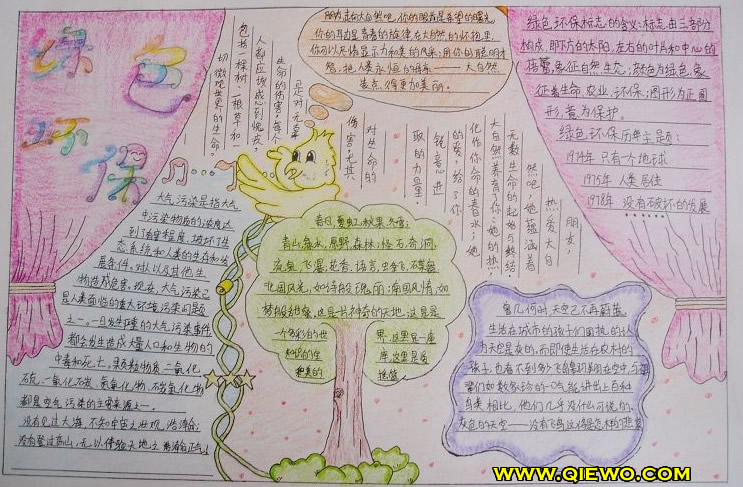 绿色
环保
朋友,走向大自然吧,你的眼前是希望的曙光,
你的耳边是青春的旋律,在大自然的怀抱里,
你可以尽情显示力和美的风采;用你的聪明才
智,把人类永恒的母亲——大自然
装点得更加美丽。
绿色环保标志的含义:标志由三部分
构成,即下方的太阳,左右的叶片和中心的
蓓蕾,象征自然生态;颜色为绿色,象
征着生命,农业,环保;图形为正圆
形,意为保护。
绿色环保历年主题:
1974年 只有一个地球
1975年 人类居住
1978年 没有破坏的发展
朋友,
热爱大自
然吧,她蕴涵着
无数生命的起始与终结,
大自然养育了你:她的热,
化作你生命的春水;她
的爱,给了你
锐意进
取的力量。
对生命的
伤害,尤其
是对一无辜
生命的伤害,每个
人都应该感到愧疚,
包括一棵树、一根草和一
切微观世界的生命。
大气污染是指大气
中污染物质的浓度达
到有害程度,破坏了生
态系统和人类的生存和发
展条件,对人以及其他生
物造成危害。现在,大气污染已
是人类面临的重大环境污染问题
之一。一旦发生严重的大气污染事件
都会发生造成大量人口和生物的
中毒和死亡。颗粒物质、二氧化
硫、一氧化碳、氮氧化物、碳氢化物
都是空气污染的主要来源之一。
没有见过大海,不知宇宙之壮观,浩渺;
没有登过高山,无以体验天地之
春日,夏虹,秋果,冬雪;
青山,海水,原野,森林;怪石,奇洞,
流泉,飞瀑,花香,语言,虫争飞,
北国风光,如诗般瑰丽;南国风情,如
梦般甜蜜,这是一片神奇的天地,这是
一个多彩的世界,这里是一座
知识的宝库,这里是爱
和美的摇篮。
曾几何时,天空已不再蔚蓝。
生活在城市的孩子们固执的认
为天空是灰的,而即使生活在农村的
孩子,也看不到多少飞鸟
们如数家珍的一口气能讲出上百种
鸟类相比,他们几乎没什么可说的,
灰色的天空——没有飞鸟
WWW.QIEWO.COM